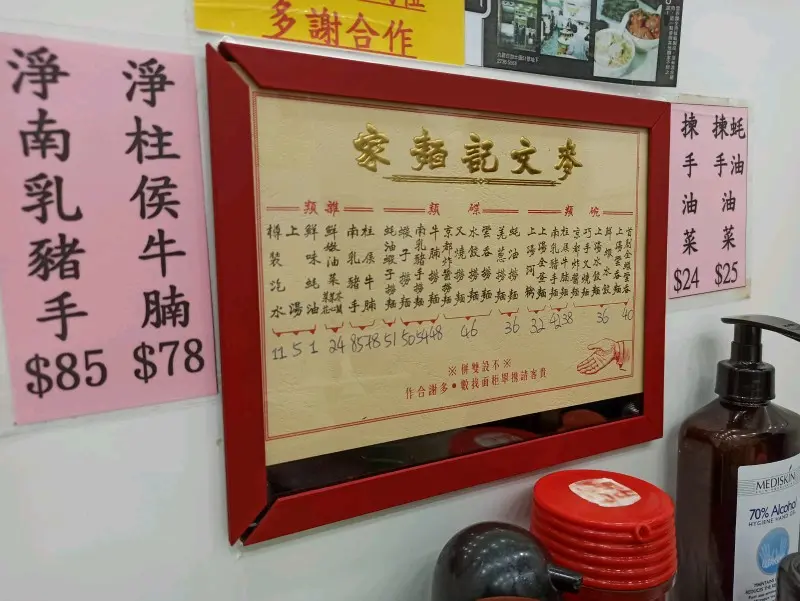 多謝合作
淨柱侯牛腩
$78
淨南乳豬手
$85
麥文記麵家
碗類
首創全蝦雲吞
上湯雲吞麵
鮮蝦水餃
上湯水餃麵
巧手叉燒麵
京都炸醬麵
柱侯牛腩麵
南乳豬手麵
上湯全蛋麵
上湯河粉
40 36 38 42 32
碟類
蚝油撈麵
羗葱撈麵
雲吞撈麵
水餃撈麵
叉燒撈麵
京都炸醬撈麵
牛腩撈麵
南乳豬手撈麵
蝦子撈麵
蚝油蝦子撈麵
36 46 48 54 50 51
雜類
柱侯牛腩
南乳豬手
鮮蠔油菜
鮮味蚝油
上湯
樽裝汽水
78 85 24 1 5 11
※不設雙併※
貴客請携單櫃面找數•多謝合作
蚝油揀手油菜
$25
揀手油菜
$24
MEDISKIN
70% Alcohol
HYGIENE HAND GEL